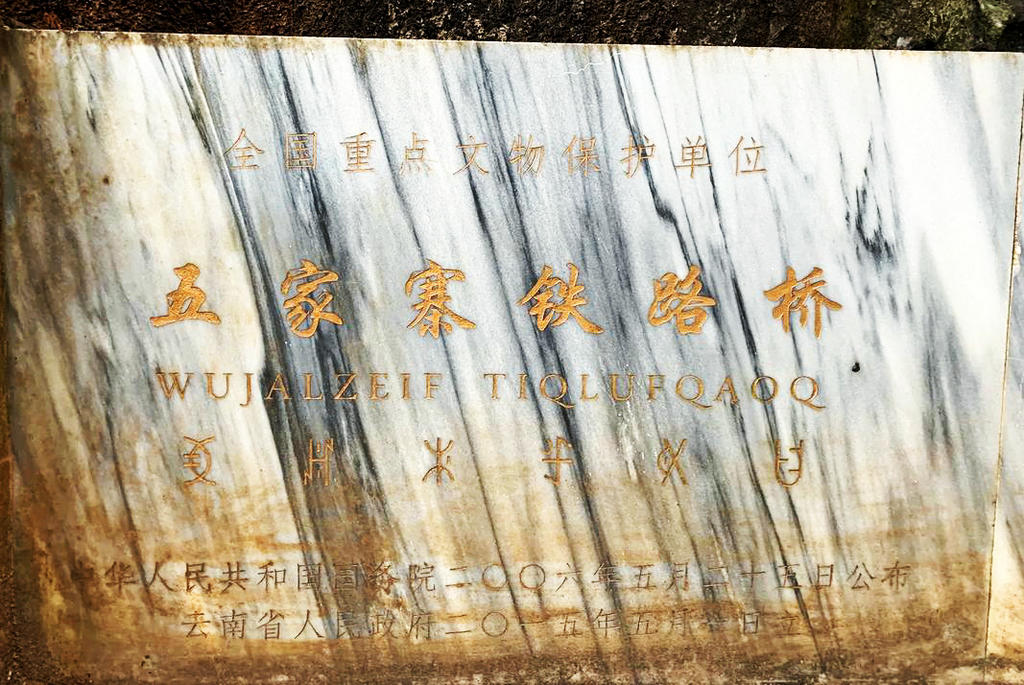 全国重点文物保护单位
五家寨铁路桥
WUJALZEIF TIQLUFQAOQ
中华人民共和国国务院二〇〇六年五月二十五日公布
云南省人民政府二〇一五年五月 日立